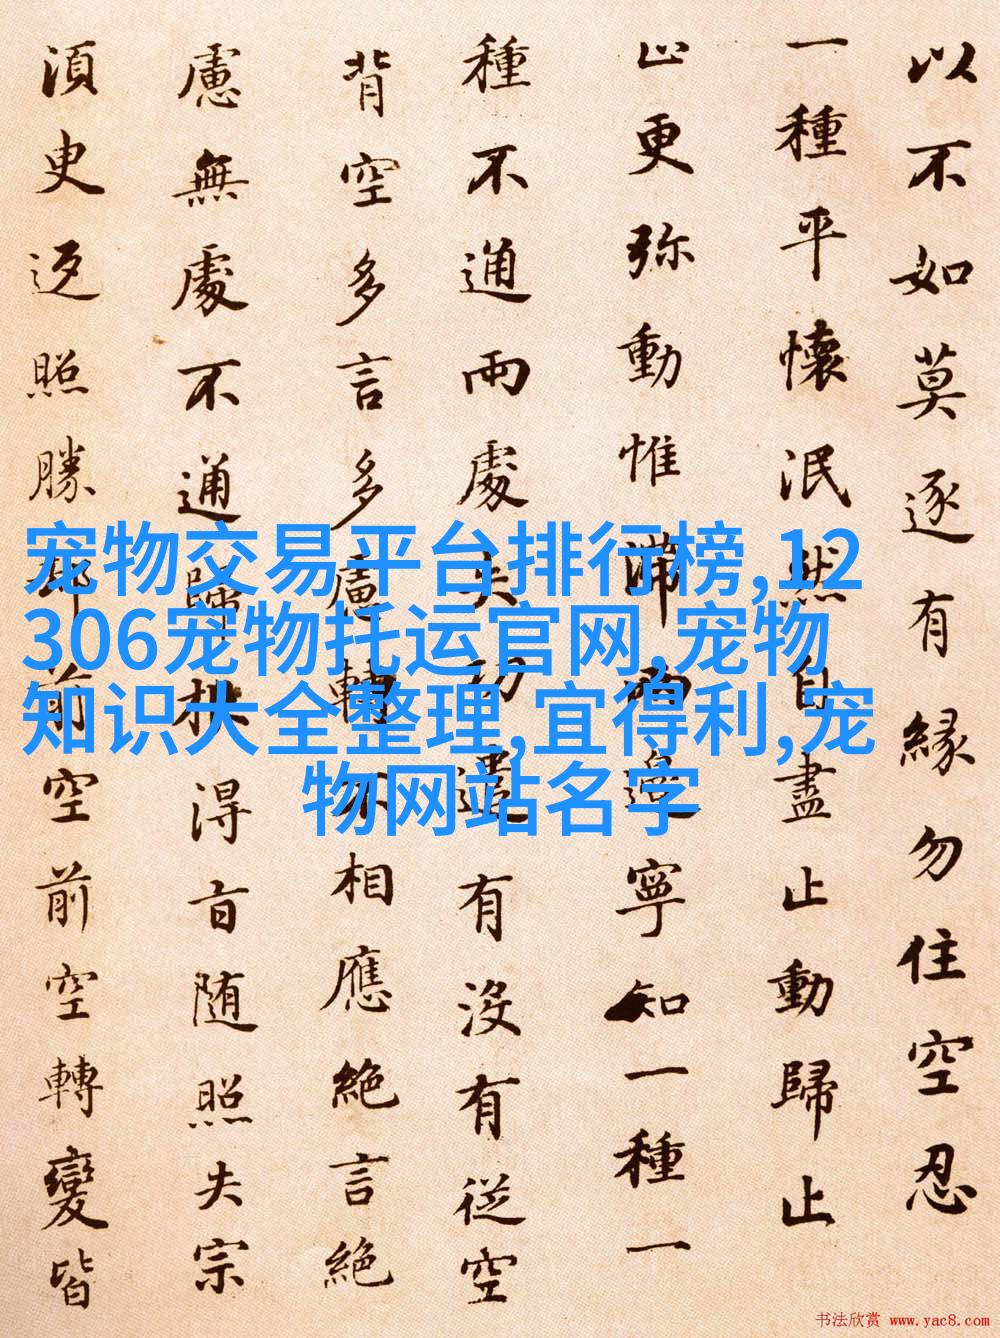 以不如莫逐有緣勿住空忍
一種平懷泯然自盡止動歸止
止更弥動惟滯兩邊寧知一種一
種不通兩處失功遣有沒有從空
背空多言多慮轉不相應絕言絕
慮無處不通歸根得旨随照失宗
須臾返照勝却前空前空轉變皆
宠物交易平台排行榜,12
306宠物托运官网,宠物
知识大全整理,宜得利,宠
物网站名字
书法欣赏 www.yac8.com